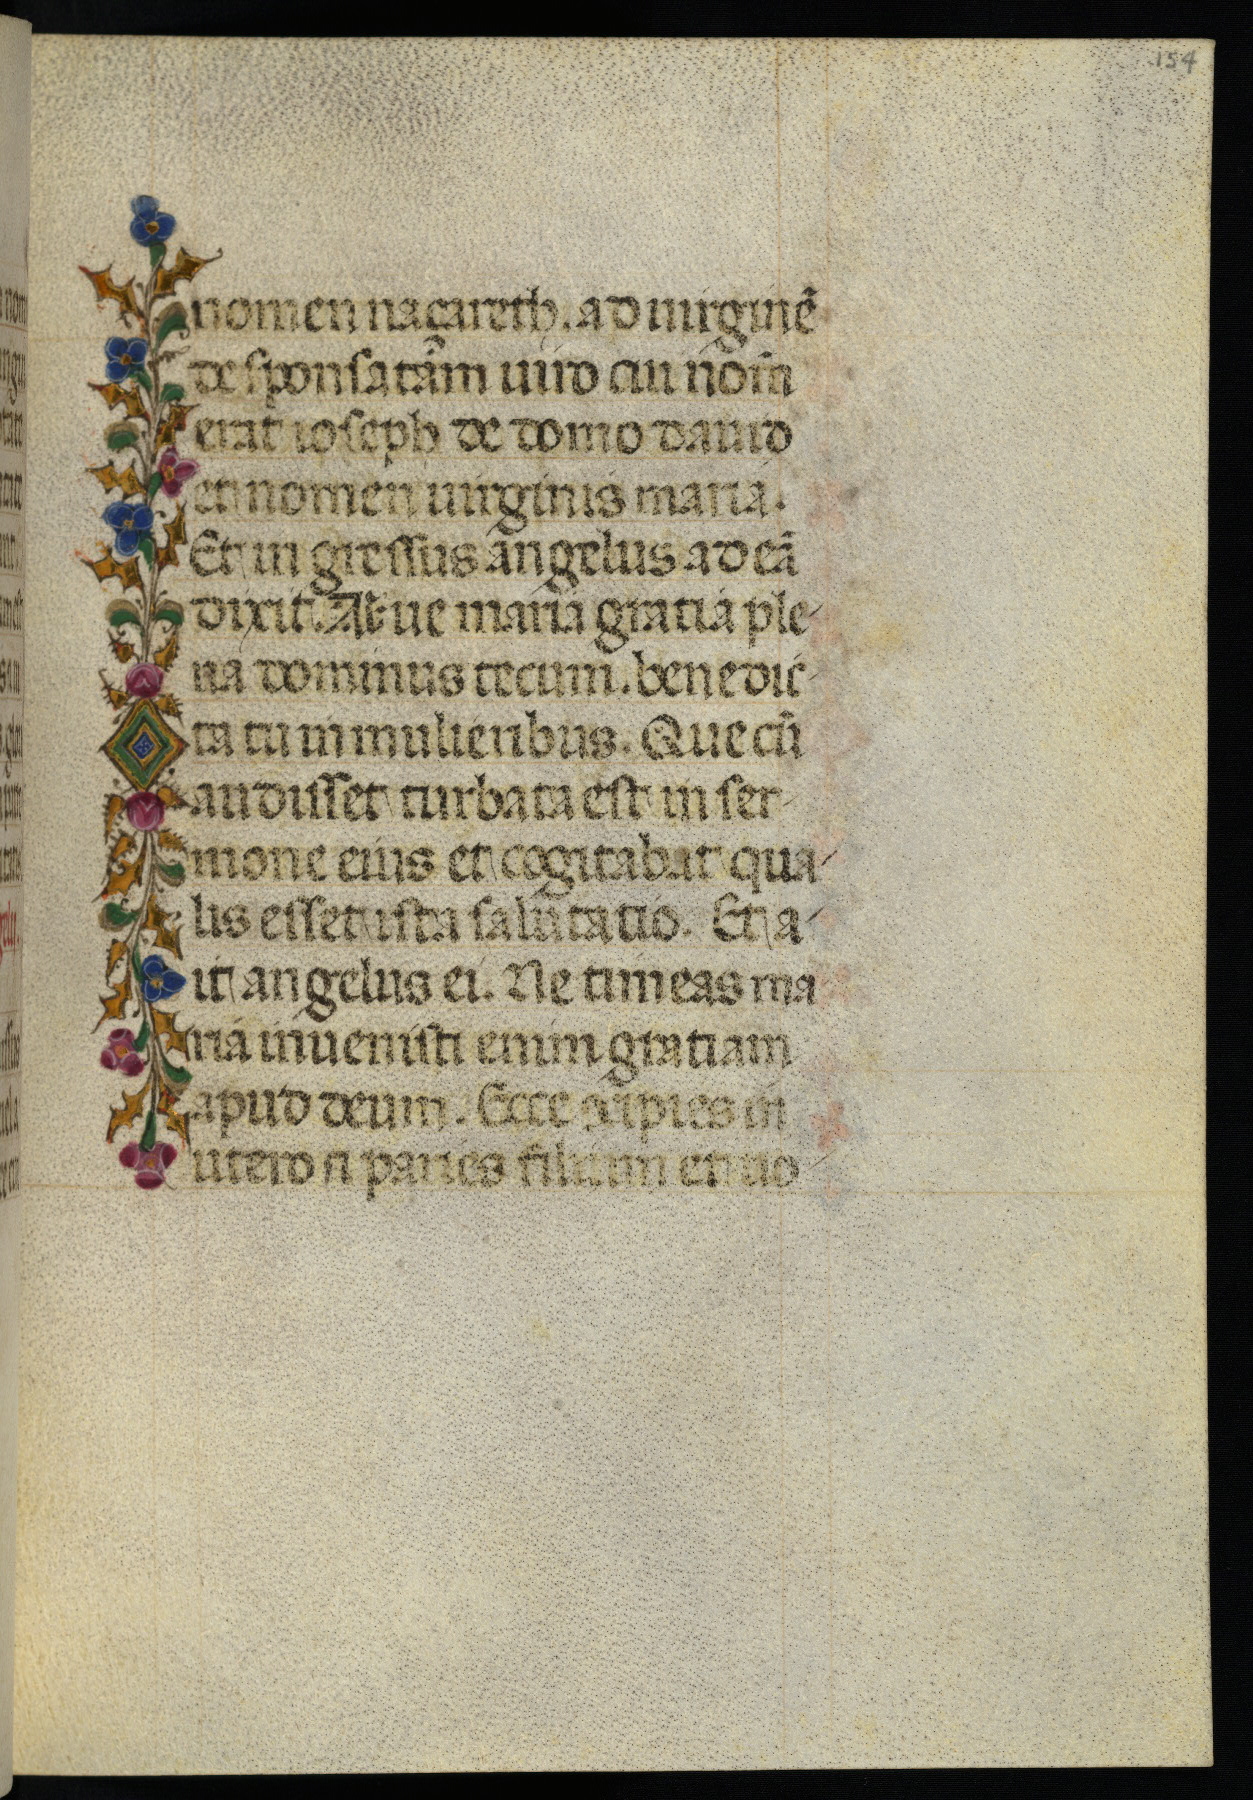 154
nomen naçareth. ad uirginē
desponsatam uiro cui nom̄
erat ioseph de domo dauid
et nomen uirginis maria.
Et in gressus angelus ad eā
dixit. Aue maria gratia ple
na dominus tecum. benedic
ta tu in mulieribus. Que cū
audisset turbata est in ser
mone eius et cogitabat qua
lis esset ista salutatio. Et a
it angelus ei. Ne timeas ma
ria inuenisti enim gratiam
apud deum. Ecce in
utero paries filium et uo